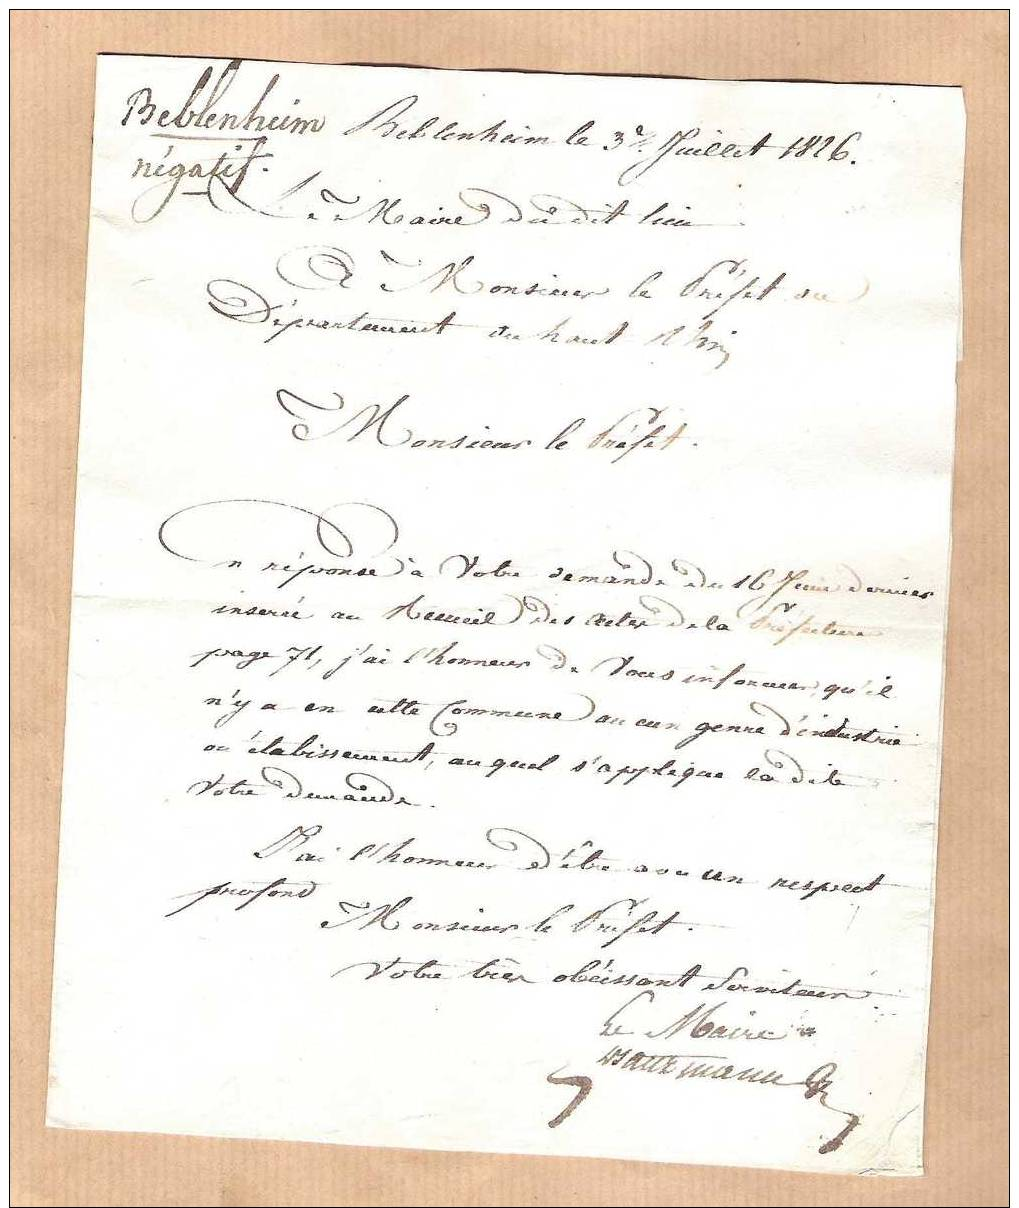 Beblenheim
négatif.
Beblenheim le 3e Juillet 1826.
Le Maire du dit lieu
A Monsieur le Préfet du
Département du haut Rhin
Monsieur le Préfet.
En réponse à Votre demande du 16 Juin dernier
inserée au Recueil des actes de la Préfecture
page 71, j'ai l'honneur de Vous informer, qu'il
n'y a en cette Commune aucun genre d'industrie
ou établissement, auquel s'applique la dite
Votre demande.
J'ai l'honneur d'être avec un respect
profond
Monsieur le Préfet.
Votre très obéissant Serviteur
Le Maire